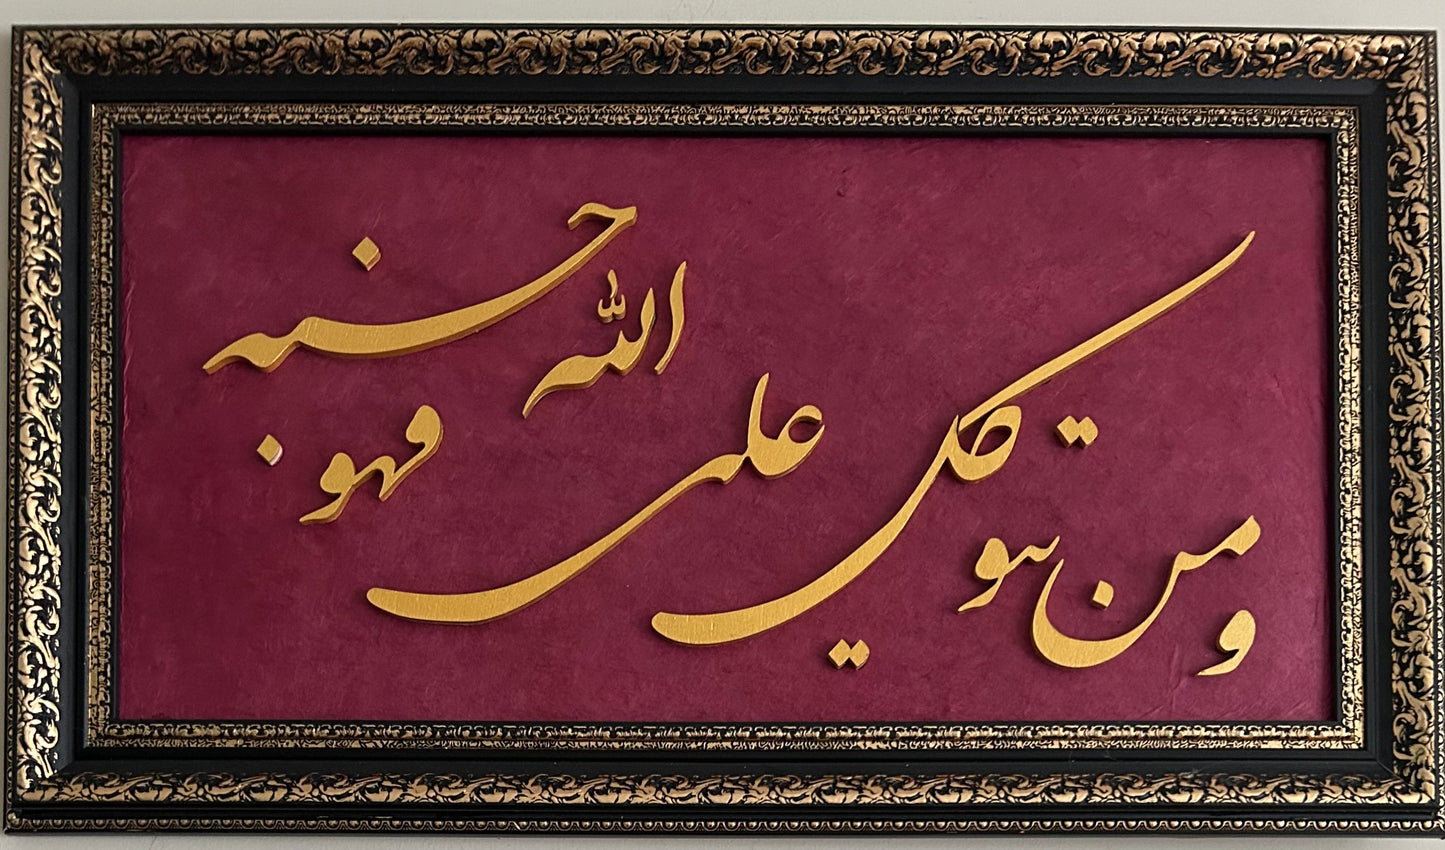 ومن يتوكل على الله فهو حسبه